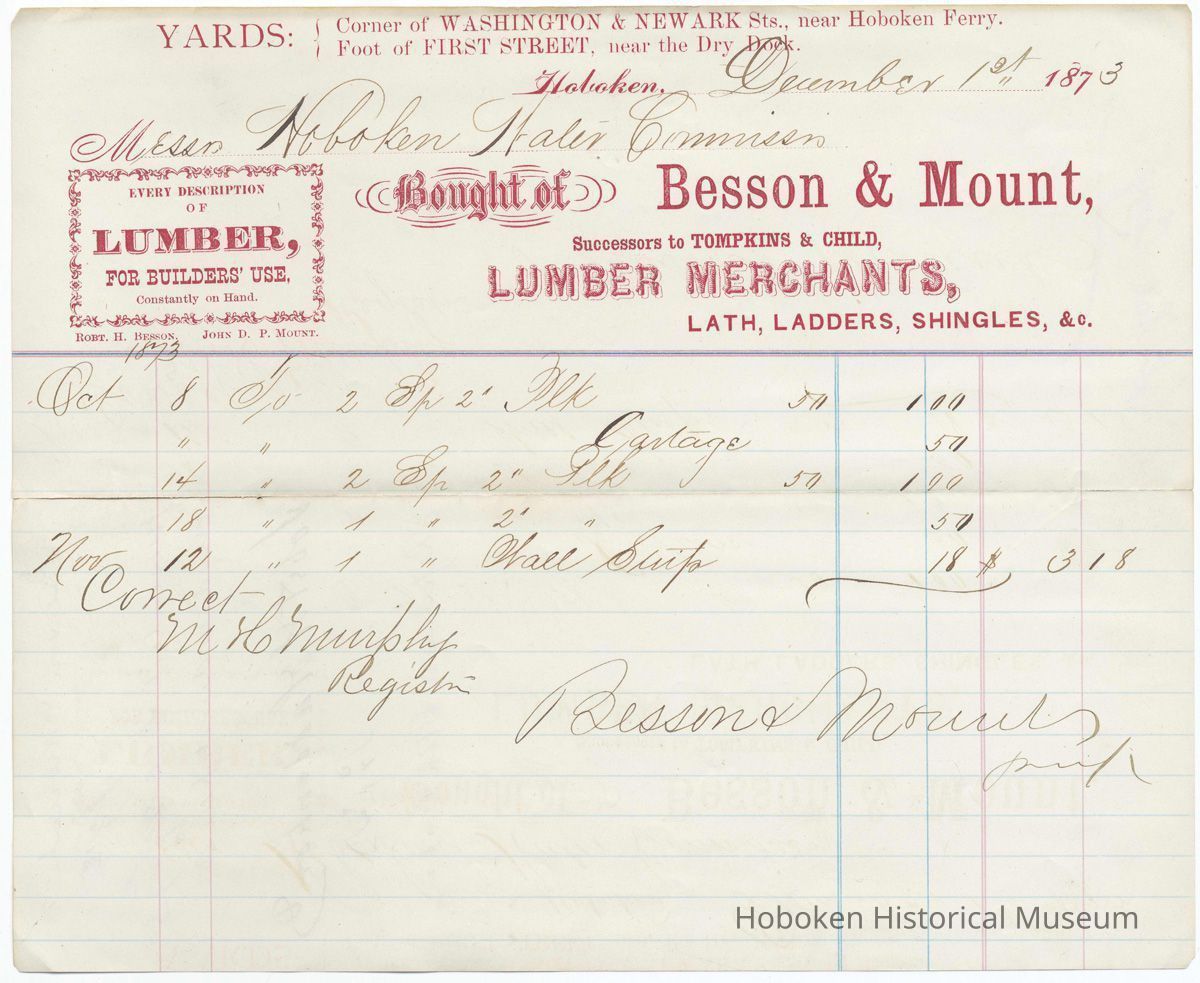 YARDS: { Corner of WASHINGTON & NEWARK Sts., near Hoboken Ferry.
Foot of FIRST STREET, near the Dry Dock.
Hoboken, December 1st 1873
Messrs Hoboken Water Commissn
EVERY DESCRIPTION
OF
LUMBER,
FOR BUILDERS' USE,
Constantly on Hand.
ROBT. H. BESSON. JOHN D. P. MOUNT.
Bought of Besson & Mount,
Successors to TOMPKINS & CHILD,
LUMBER MERCHANTS,
LATH, LADDERS, SHINGLES, &c.
1873
Oct 8 To 2 Sp 2" Plk 50 1 00
" " Cartage 50
14 " 2 Sp 2" Plk 50 1 00
18 " 1 " 2" " 50
Nov 12 " 1 " Wall Strip 18 $ 3 18
Correct
M H Murphy
Registr
Besson & Mount
Hoboken Historical Museum